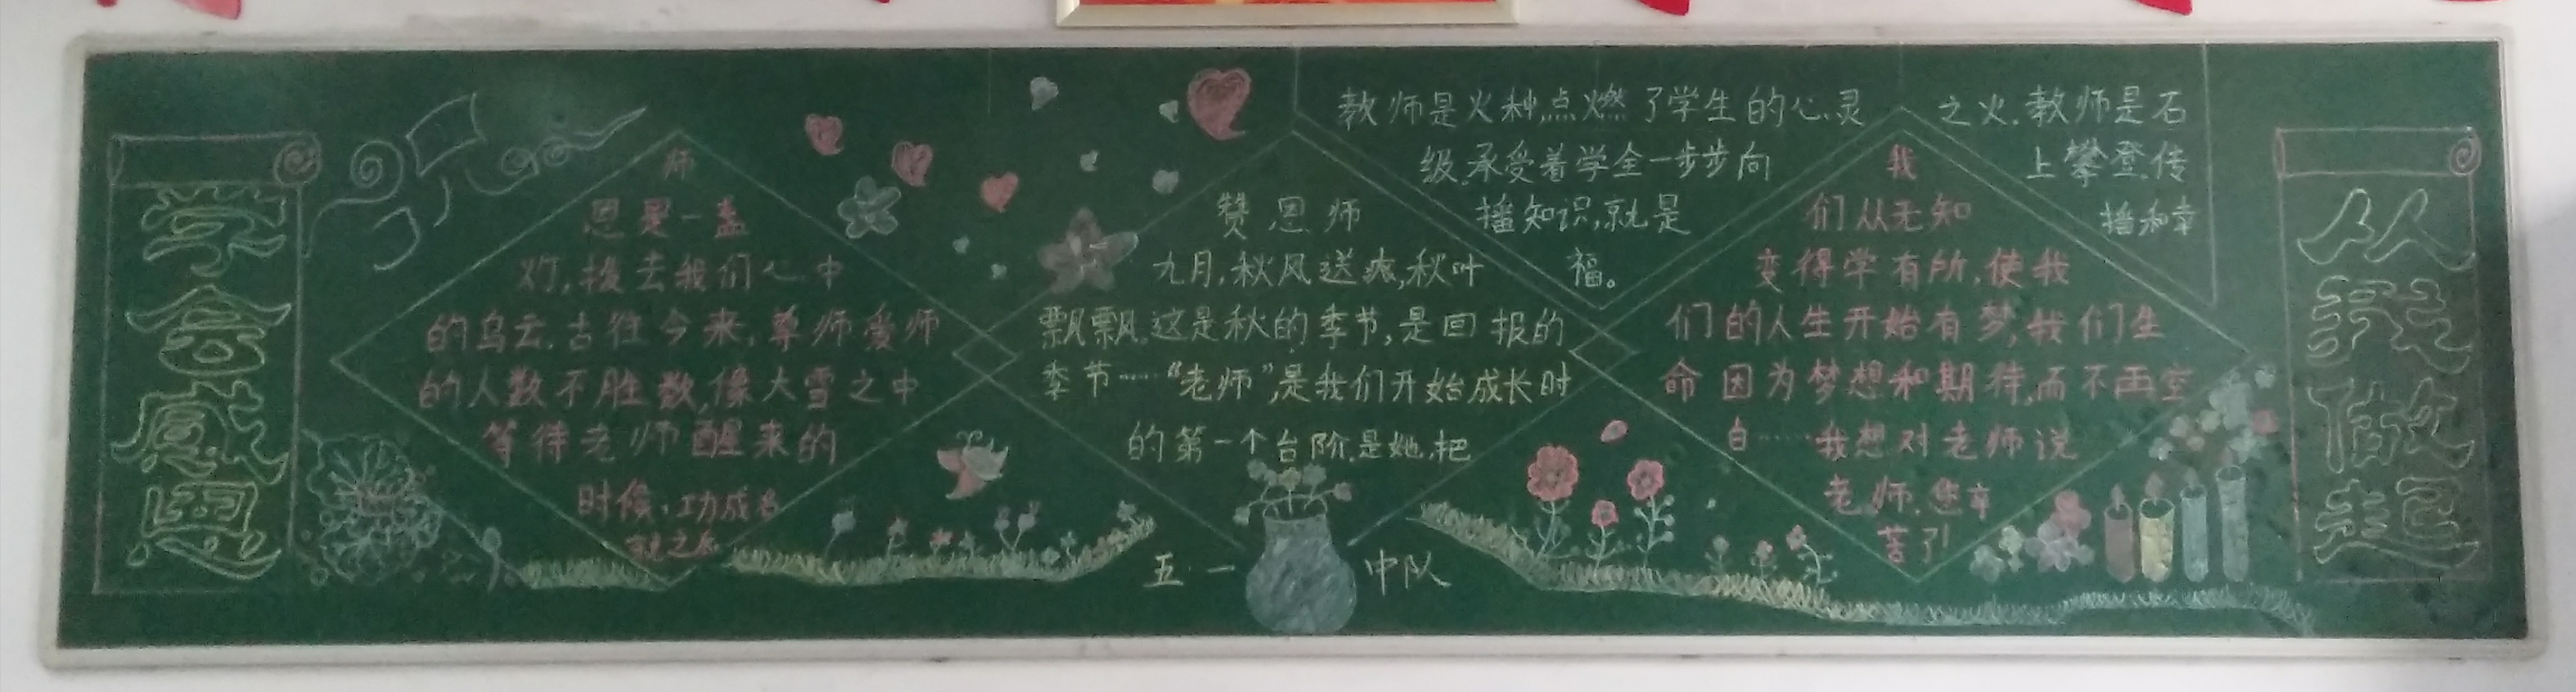 学会感恩
师
恩是一盏
灯,拨去我们心中
的乌云.古往今来,尊师爱师
的人数不胜数,像大雪之中
等待老师醒来的
时候,功成名
就之后
赞恩师
九月,秋风送爽,秋叶
飘飘.这是秋的季节,是回报的
季节……“老师”,是我们开始成长时
的第一个台阶.是她.把
五·一中队
教师是火种,点燃了学生的心灵之火.教师是石
级.承受着学全一步步向上攀登.传
播知识,就是播和幸
福。
我
们从无知
变得学有所,使我
们的人生开始有梦,我们生
命因为梦想和期待,而不再空
白……我想对老师说
老师.您辛
苦了!
从我做起